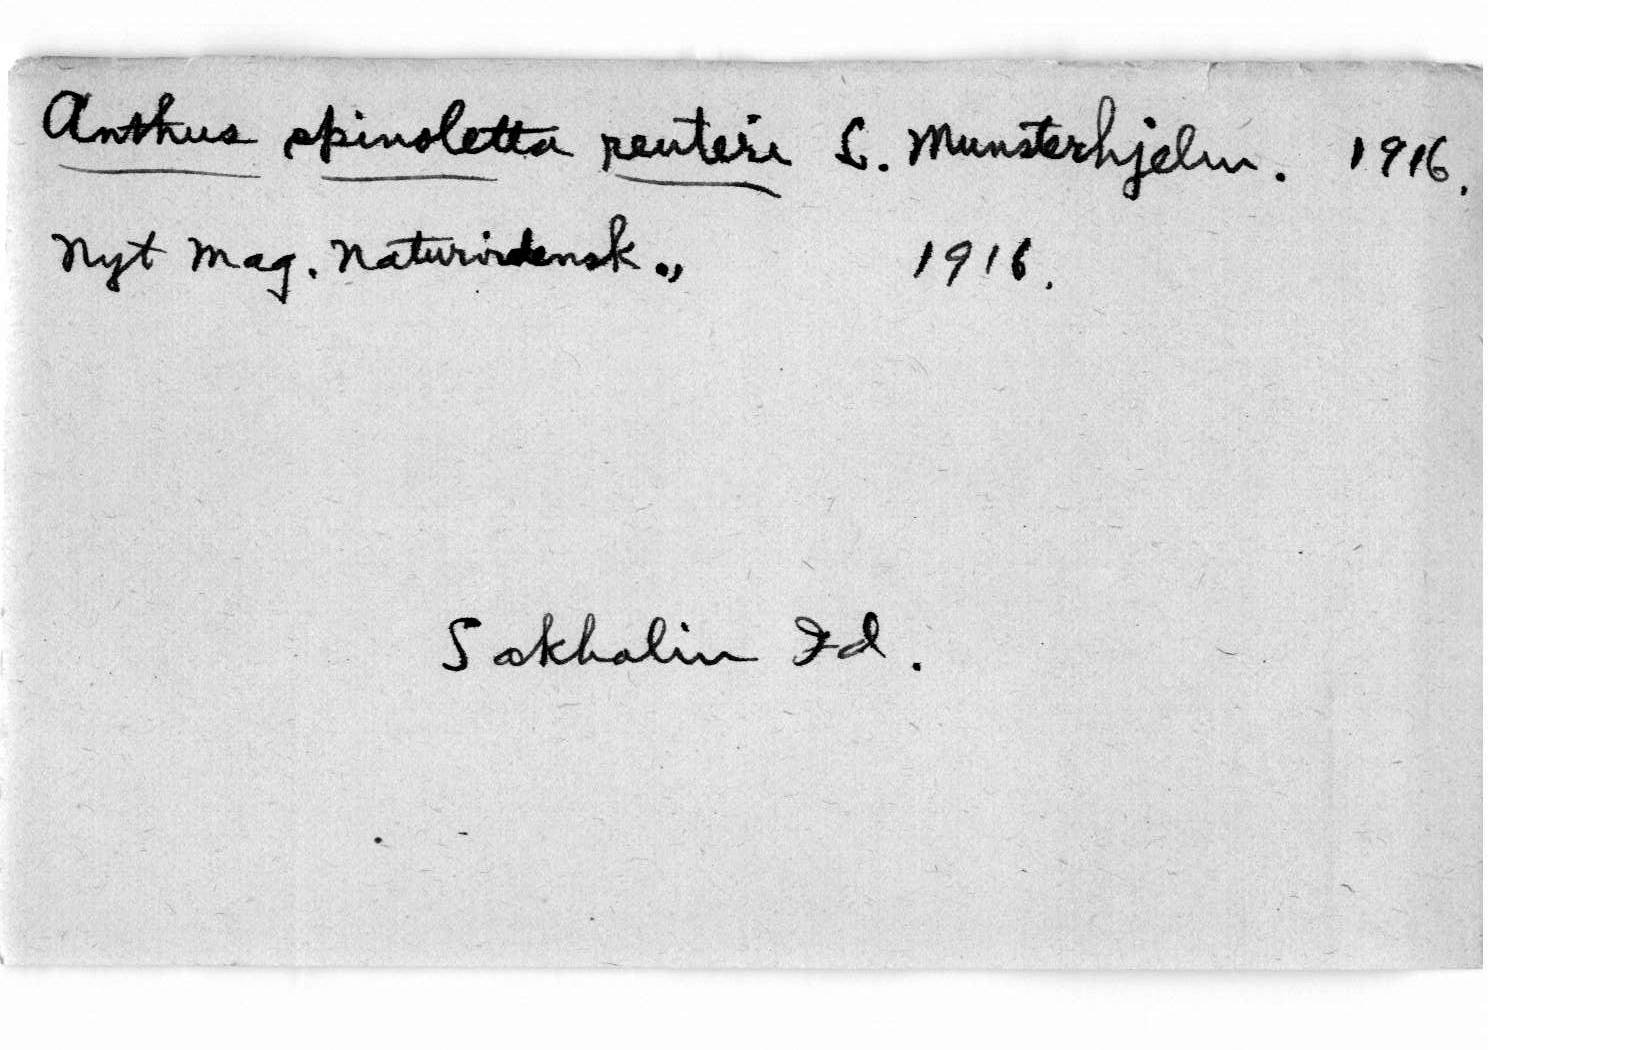 Anthus spinoletta reuteri L. Munsterhjelm. 1916.
Nyt Mag. Naturvidensk., 1916.
Sakhalin Id.